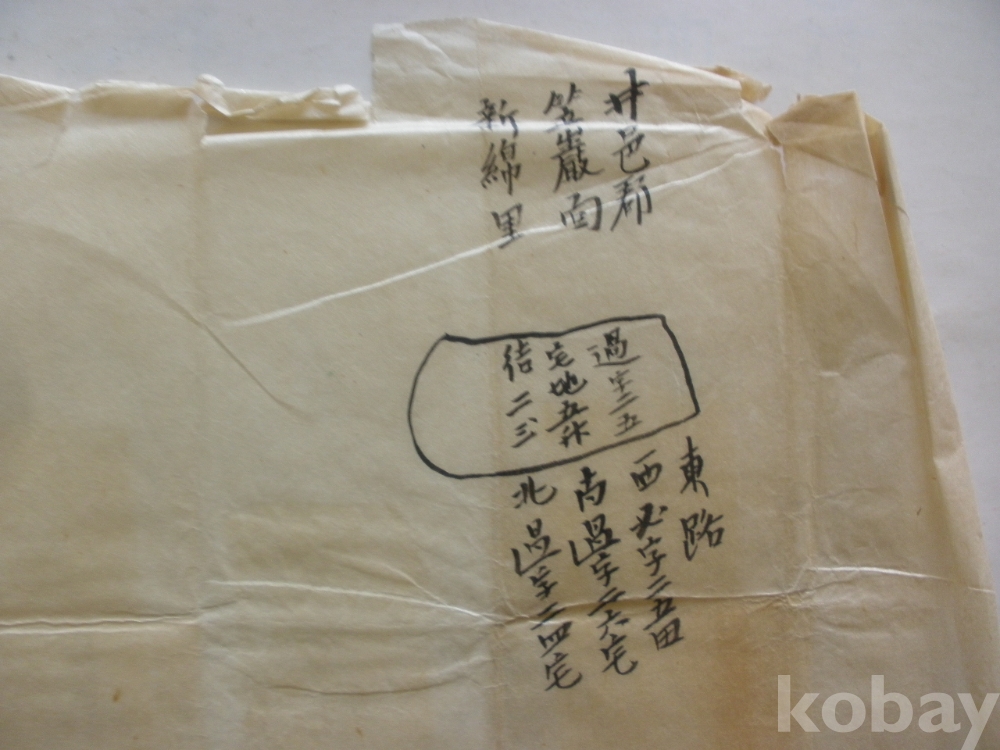 井邑郡
笠巖面
新綿里
過字二五
宅地五升
結二分
東路
西必字二五田
南過字二六宅
北過字二四宅
kobay